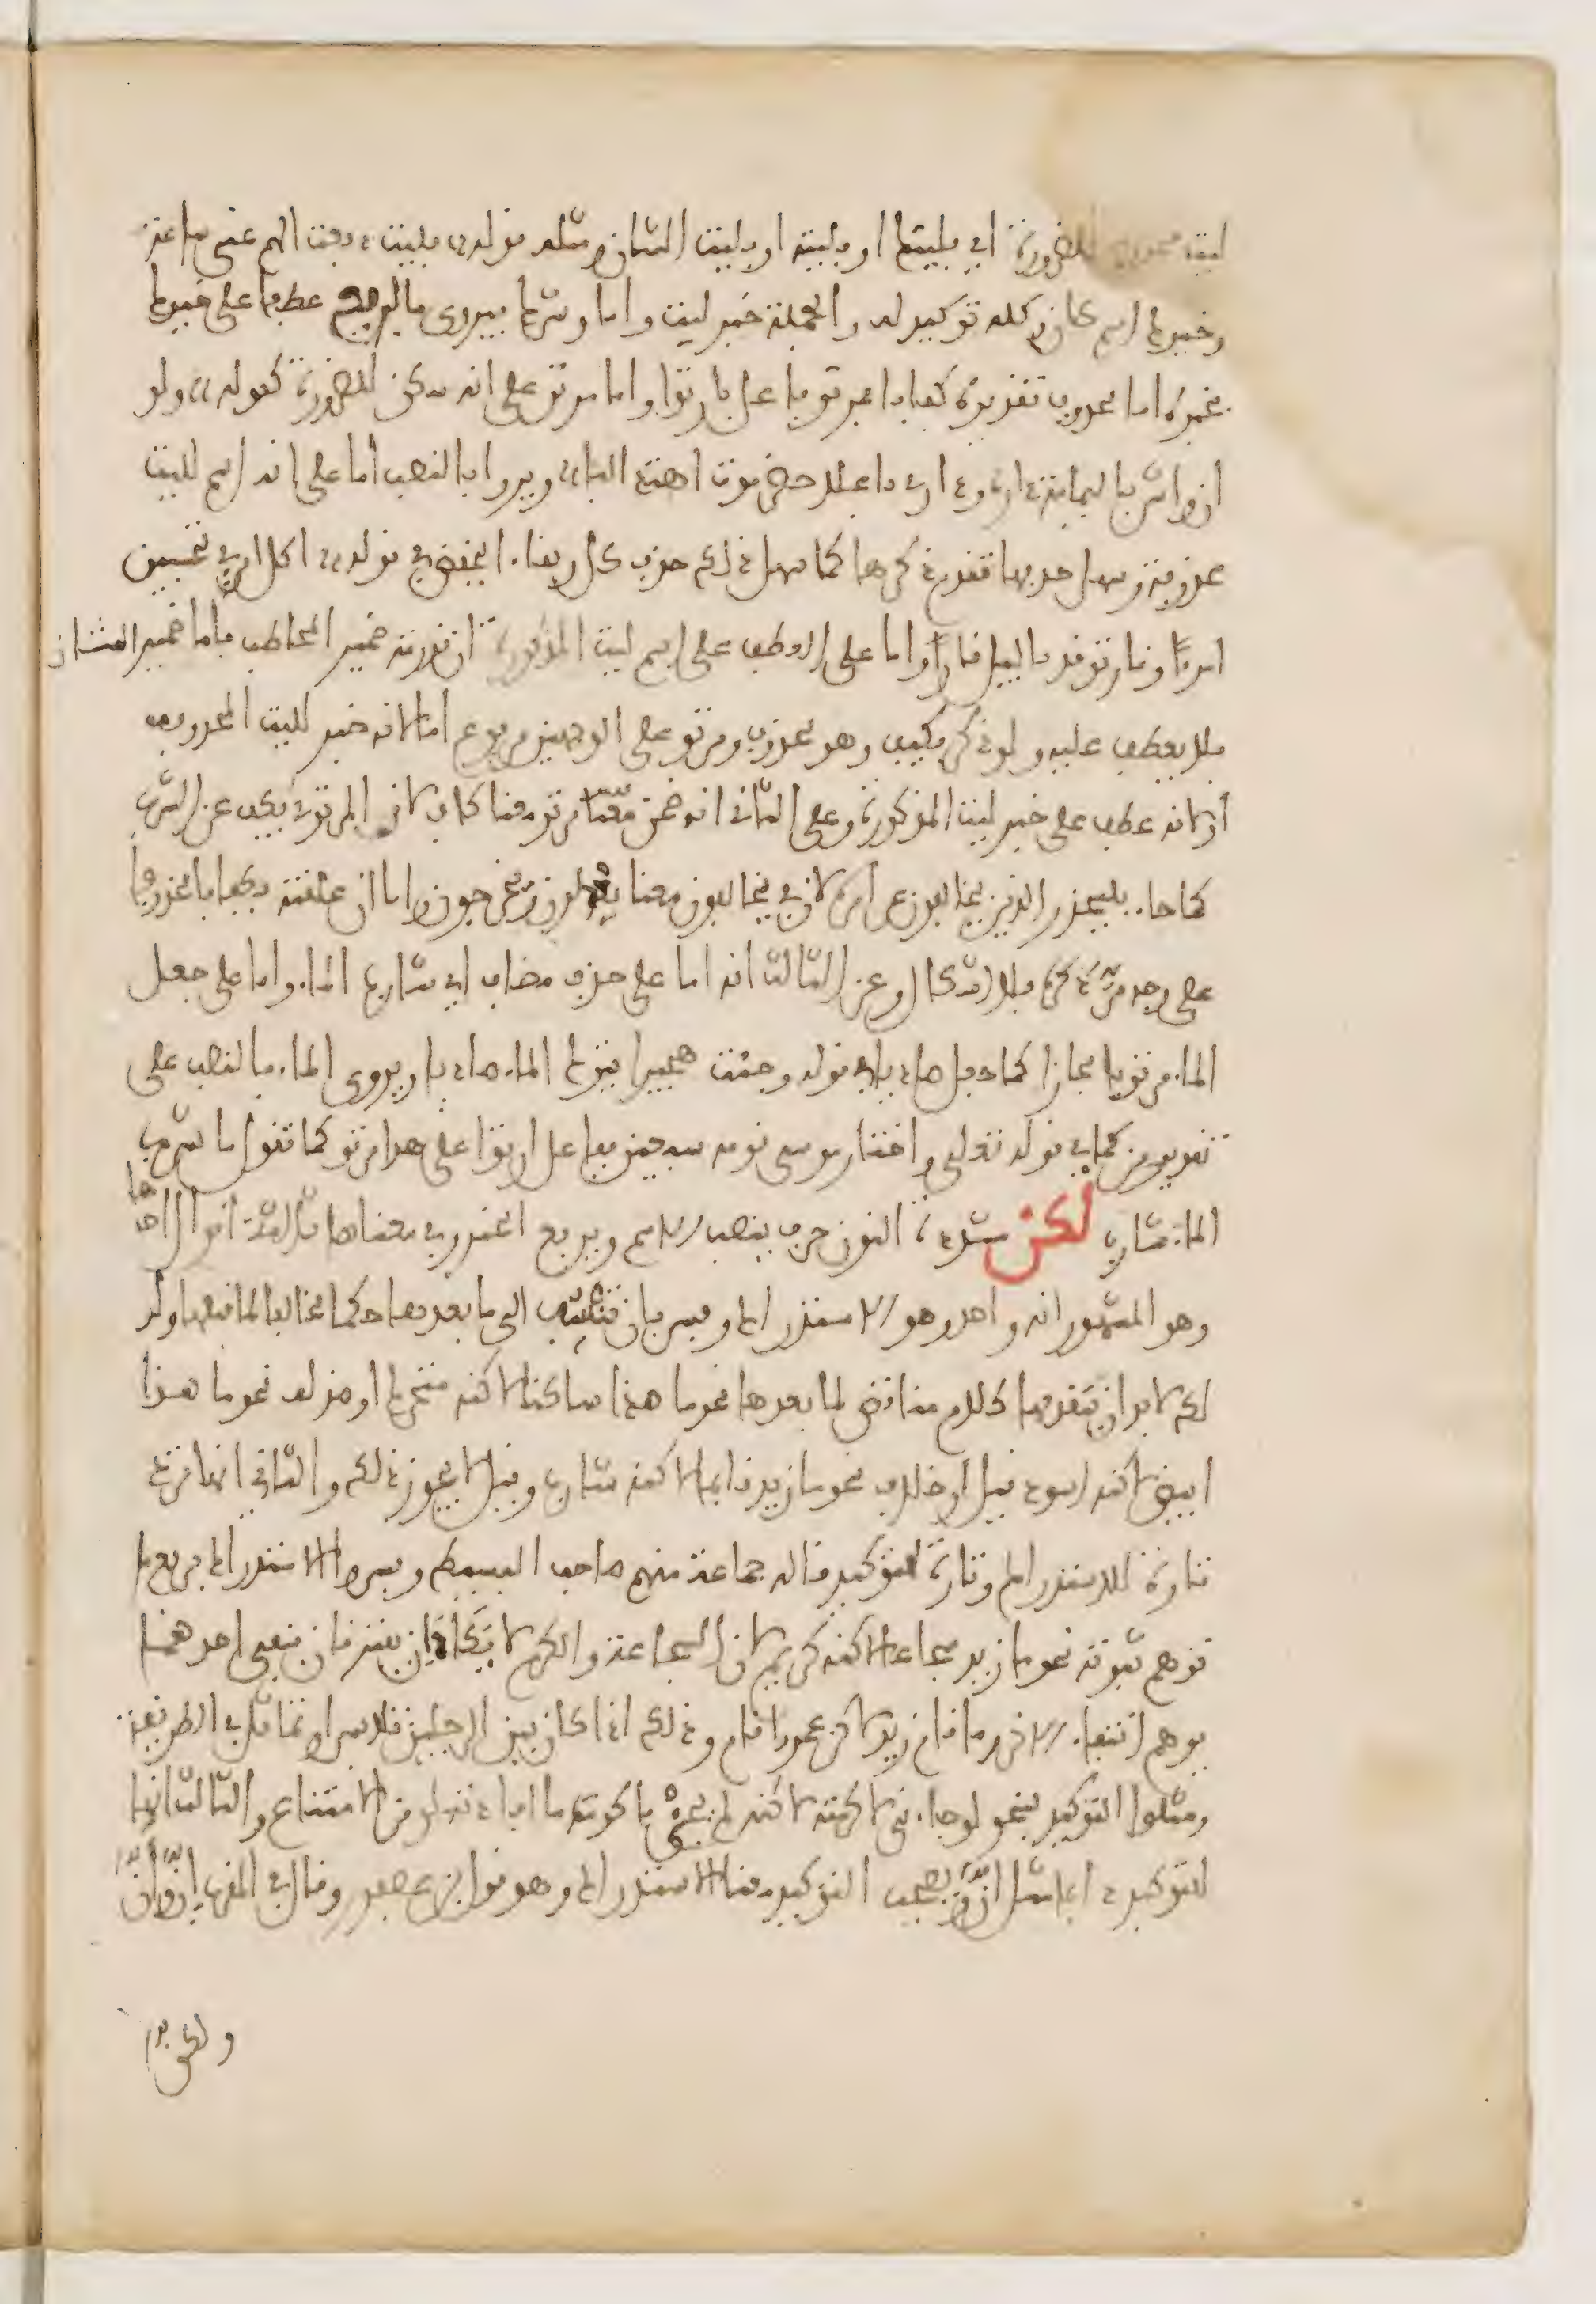 ليت محذوف للضرورة اي فليتك او فليته او فليت الشان ومثله قوله فليت دفعت الهم عني ساعة
وخيرك اسم كان وكله توكيد له والجملة خبر ليت واما وشرك فيروى بالرفع عطفا على خيرك
فخبره اما محذوف تقديره كفافا فمرتو فاعل بارتوا واما مرتو على انه سكن للضرورة كقوله ولو
ان واش باليمامة داره وداري باعلا حضرموت اهتدى اليا ويروا بالنصب اما على انه اسم لليت
محذوفة وسهل حذفها تقدم ذكرها كما سهل ذلك حذف كل وبقاء الخفض في قوله اكل امرئ تحسبين
امرءا ونار توقد بالليل نارا واما على العطف على اسم ليت المذكورة ان قدرته ضمير المخاطب فاما ضمير الشان
فلا يعطف عليه ولو ذكر فكيف وهو محذوف ومرتو على الوجهين مرفوع اما لانه خبر لليت المحذوفة
او لانه عطف على خبر ليت المذكورة وعلى الثاني انه ضمن مرتو معنا كاف لان المرتوي يكف عن الشرب
كما جاء فليحذر الذين يخالفون عن امره لان في يخالفون معنا يعدلون ويخرجون واما ان علقته بكفافا محذوفا
على وجه مر ذكره فلا اشكال وعن الثالث انه اما على حذف مضاف اي شارب الماء واما على جعل
الماء مرتويا مجازا كما جعل صاديا في قوله وجبت هجيرا يترك الماء صاديا ويروى الماء بالنصب على
تقدير من كما في قوله تعالى واختار موسى قومه سبعين ففاعل ارتوا على هذا مرتو كما تقول ما شرب
الماء شارب لكن مشددة النون حرف ينصب الاسم ويرفع الخبر وفي معناها ثلاثة اقوال احدها
وهو المشهور انه واحد وهو الاستدراك وفسر بان تنسب الى ما بعدها حكما مخالفا لما قبلها ولذ
لك لا بد ان يتقدمها كلام مناقض لما بعدها نحو ما هذا ساكنا لاكنه متحرك او ضد له نحو ما هذا
ابيض لاكنه اسود قيل او خلاف نحو ما زيد قايما لاكنه شارب وقيل لا يجوز ذلك والثاني انها ترد
تارة للاستدراك وتارة للتوكيد قاله جماعة منهم صاحب البسيط وفسروا الاستدراك برفع ما
توهم ثبوته نحو ما زيد شجاعا لاكنه كريم لان الشجاعة والكرم لا يكادان يفترقان فنفي احدهما
يوهم انتفاء الاخر وما قام زيد لاكن عمرا قام وذلك اذا كان بين الرجلين تلابس او تماثل في الطريقة
ومثلوا التوكيد بنحو لو جاءني لاكرمته لاكنه لم يجئ فاكدت ما افادته لو من الامتناع والثالث انها
للتوكيد دايما مثل ان ويصحب التوكيد معنا الاستدراك وهو قول ابن عصفور وقال في المقرب ان وان
ولكن